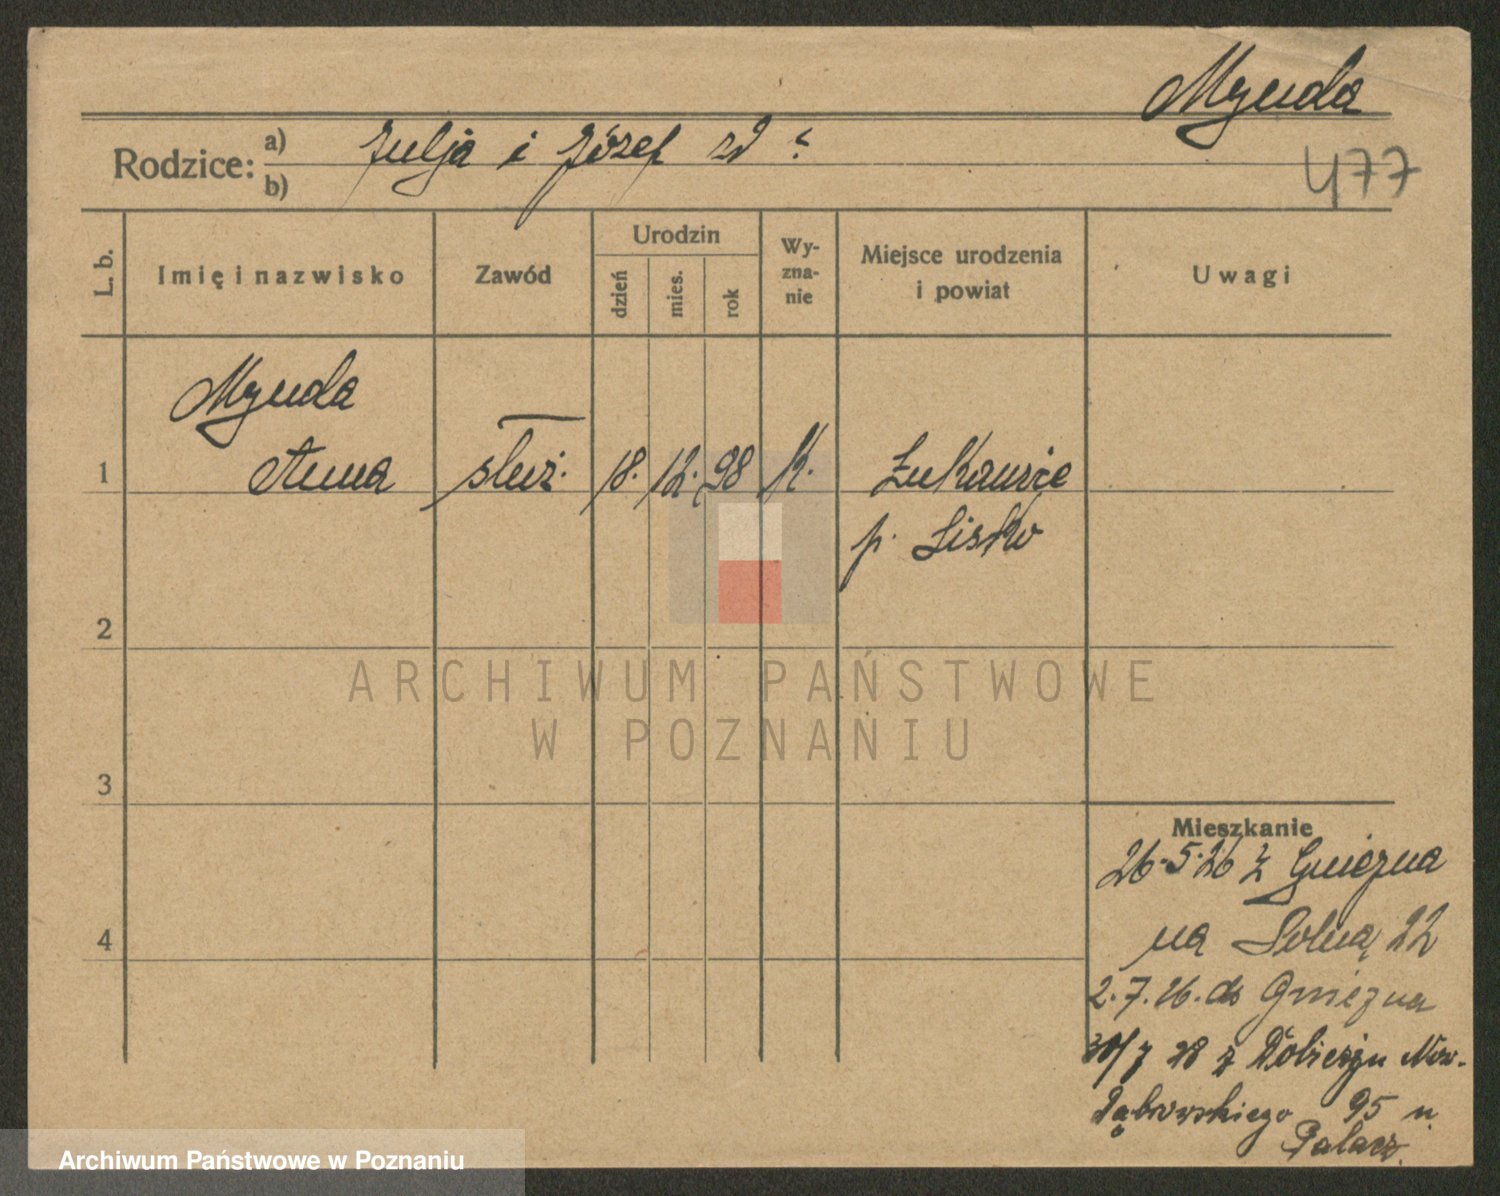 Myuda
Rodzice: a) Julja i Józef zd ?
b)
477
L. b. Imię i nazwisko Zawód Urodzin dzień mies. rok Wy-zna-nie Miejsce urodzenia i powiat Uwagi
Myuda
1 Anna służ. 18. 12. 98 k. Łukawice
p. Lisko
2
3
4
Mieszkanie
26.5.26 z Gniezna
na Solną 22
2.7.26. do Gniezna
28 z
Dąbrowskiego 95 u.
Palacz.
ARCHIWUM PAŃSTWOWE
W POZNANIU
Archiwum Państwowe w Poznaniu